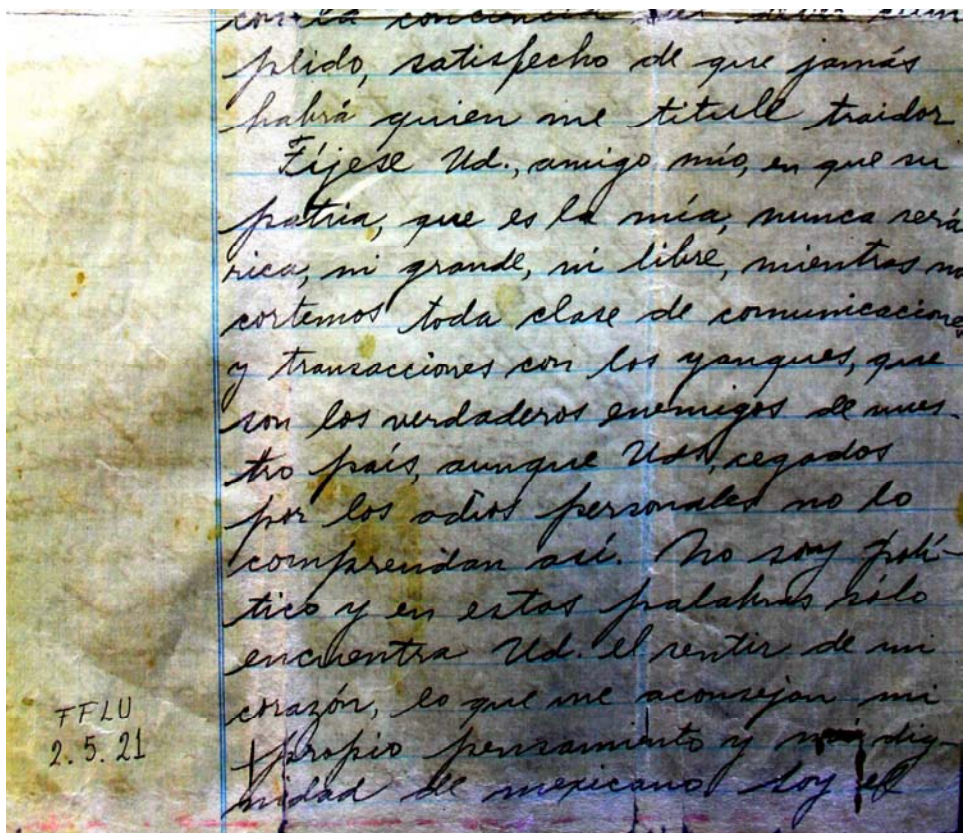 con la conciencia del deber cum
plido, satisfecho de que jamás
habrá quien me titule traidor
Fíjese Ud., amigo mío, en que su
patria, que es la mía, nunca será
rica, ni grande, ni libre, mientras no
cortemos toda clase de comunicaciones
y transacciones con los yanques, que
son los verdaderos enemigos de nues-
tro país, aunque Uds, cegados
por los odios personales no lo
comprendan así. No soy polí-
tico y en estas palabras sólo
encuentra Ud. el sentir de mi
corazón, lo que me aconsejan mi
propio pensamiento y mi dig-
nidad de mexicano. Soy el
FFLU
2.5.21